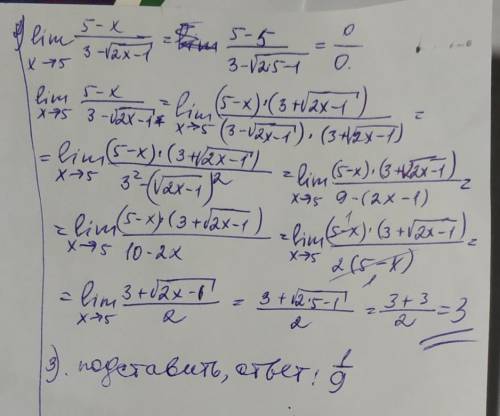 lim x→5 (5-x)/(3-√(2x-1)) = (5-5)/(3-√(2·5-1)) = 0/0
lim x→5 (5-x)/(3-√(2x-1)) = lim x→5 ((5-x)·(3+√(2x-1)))/((3-√(2x-1))·(3+√(2x-1))) =
= lim x→5 ((5-x)·(3+√(2x-1)))/(3²-(√(2x-1))²) = lim x→5 ((5-x)·(3+√(2x-1)))/(9-(2x-1)) =
= lim x→5 ((5-x)·(3+√(2x-1)))/(10-2x) = lim x→5 ((5-x)·(3+√(2x-1)))/(2(5-x)) =
= lim x→5 (3+√(2x-1))/2 = (3+√(2·5-1))/2 = (3+3)/2 = 3
3). подставить, ответ: 1/9